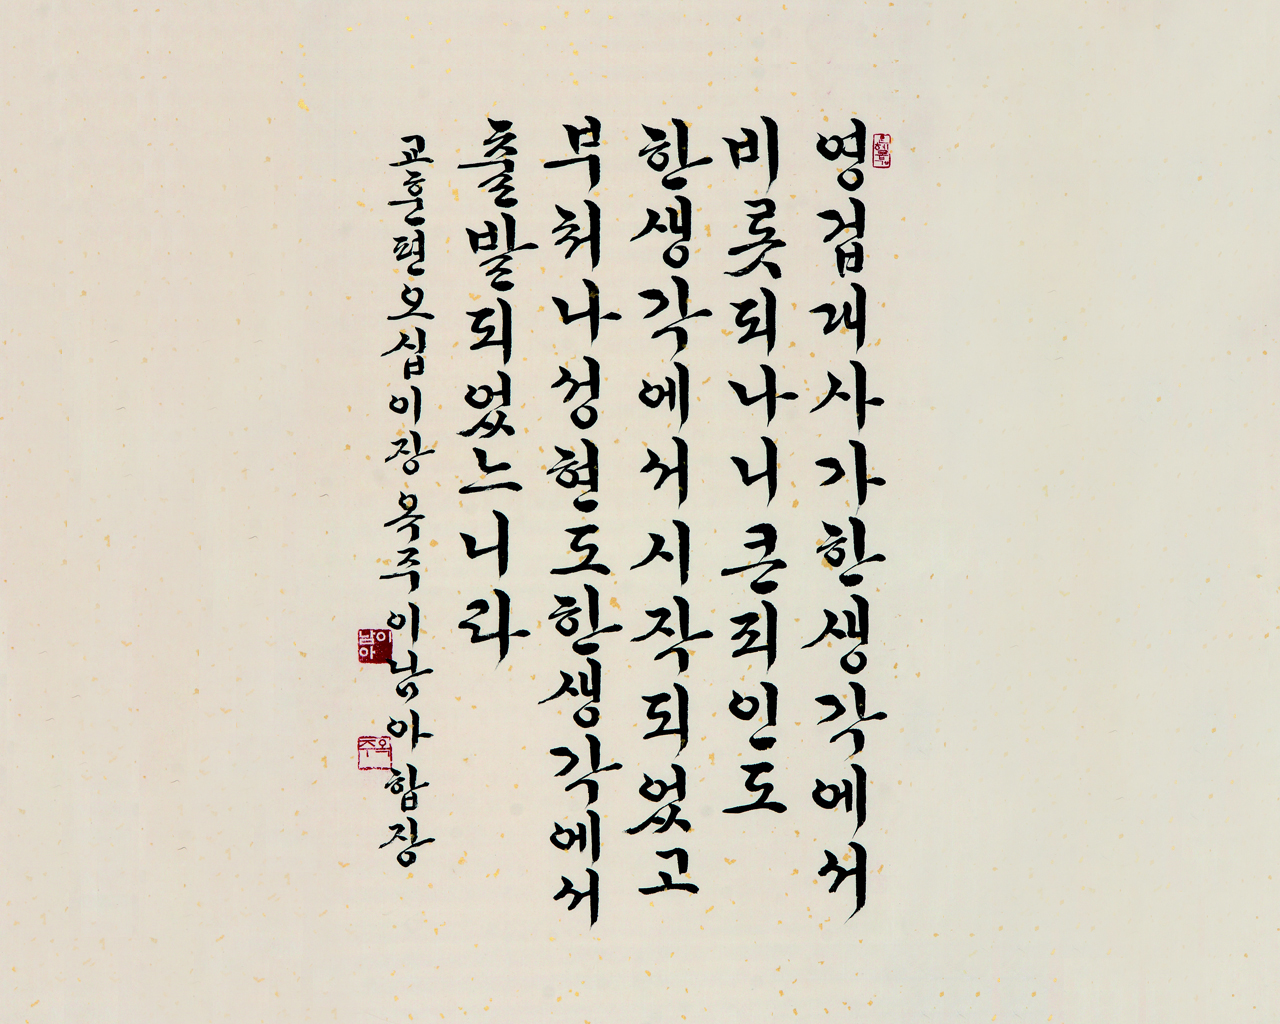 영겁래사가한생각에서
비롯되나니큰죄인도
한생각에서시작되었고
부처나성현도한생각에서
출발되었느니라
교훈편오십이장 옥주이남아합장
이남아
옥주